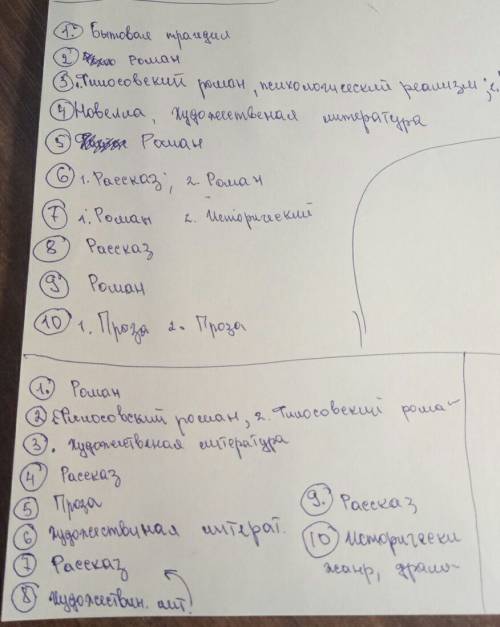 1. Бытовая трагдия
2 роман
3. Философский роман, психологический реализм, с.
4 Новелла, художественая литература
5 Роман
6 1. Рассказ; 2. Роман
7 1. Роман 2. Исторический
8 Рассказ
9 Роман
10 1. Проза 2. Проза
1. Роман
2 1. Философський роман, 2. Философский рома-
3. художественая литература
4 Рассказ
5 Проза
6 художествиная литерат.
7 Рассказ
8 художествин. лит.
9. Рассказ
10 Исторически
жанр, драма-